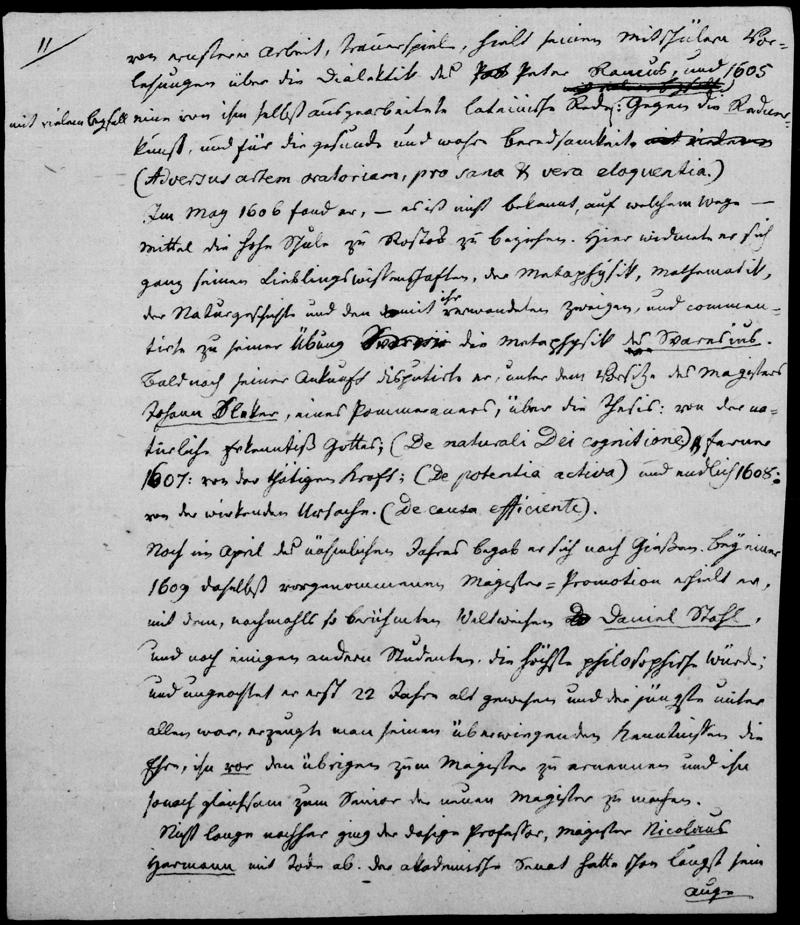 11
von ernsterer Arbeit, Trauerspiele, hielt seinen Mitschülern Vor=
lesungen über die Dialektik des Peter Ramus, und 1605
mit vielem Beyfall eine von ihm selbst ausgearbeitete lateinische Rede: Gegen die Redner=
kunst, und für die gesunde und wahre Beredsamkeit. mit vielem
(Adversus artem oratoriam, pro sana & vera eloquentia.)
Im May 1606 fand er, — es ist nicht bekannt, auf welchem Wege —
Mittel die hohe Schule zu Rostok zu beziehen. Hier widmete er sich
ganz seinen Lieblingswissenschaften, der Metaphysik, Mathematik,
der Naturgeschichte und den mit ihr verwandeten Zweigen, und commen=
tirte zu seiner Übung die Metaphysik des Svaresius.
Bald nach seiner Ankunft disputirte er, unter dem Vorsitze des Magisters
Johann Sleker, eines Pommeraners, über die Thesis: von der na=
türliche Erkenntniß Gottes; (De naturali Dei cognitione), ferner
1607: von der thätigen Kraft; (De potentia activa) und endlich 1608:
von der wirkenden Ursache. (De causa efficiente).
Noch im April des nähmlichen Jahres begab er sich nach Gießen. Bey einer
1609 daselbst vorgenommenen Magister=Promotion erhielt er,
mit dem, nachmahls so berühmten Weltweisen Daniel Stahl,
und noch einigen andern Studenten, die höchste philosophische Würde;
und ungeachtet er erst 22 Jahre alt gewesen und der jüngste unter
allen war, erzeugte man seinen überwiegenden Kenntnissen die
Ehre, ihn vor den übrigen zum Magister zu ernennen und ihn
sonach gleichsam zum Senior der neuen Magister zu machen.
Nicht lange nachher ging der dasige Professor, Magister Nicolaus
Hermann mit Tode ab. Der akademische Senat hatte schon längst sein
Auge